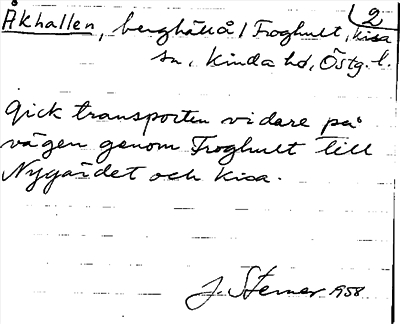 2
Åkhallen, berghäll å / Froghult, Kisa
sn, Kinda hd, Östg. l.
Gick transporten vidare på
vägen genom Froghult till
Nygärdet och Kisa.
J. Sterner 1958